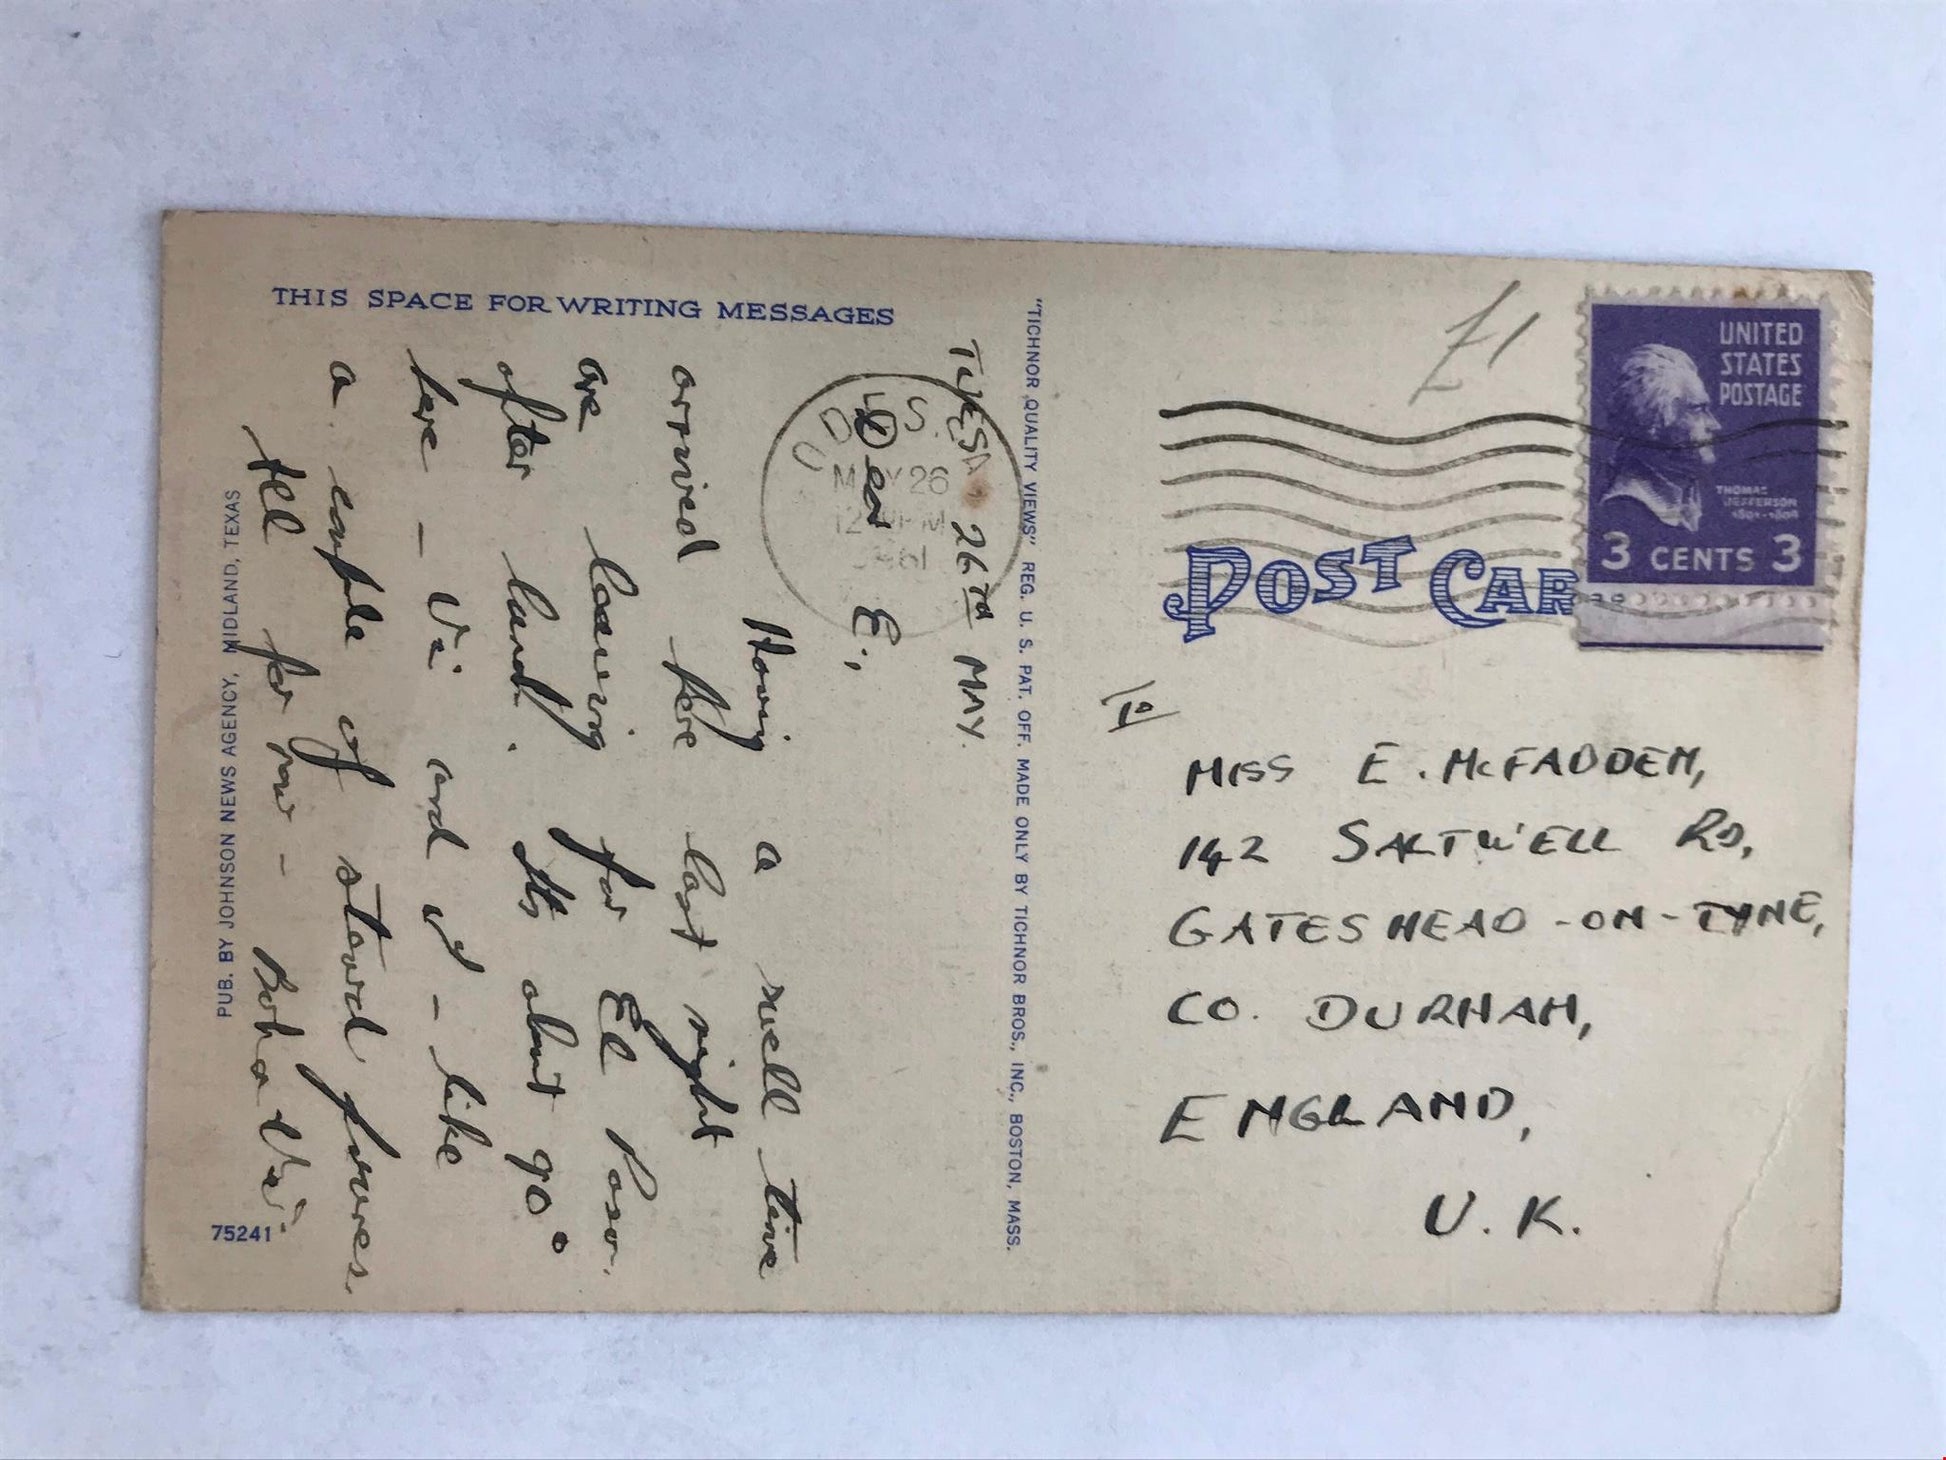 THIS SPACE FOR WRITING MESSAGES
26TH MAY.
Dear E.,
Having a swell time
arrived here last night
are leaving for El Paso.
after lunch. It's about 90°
here – Vi and I – like
a couple of stewed prunes.
All for now –
PUB. BY JOHNSON NEWS AGENCY, MIDLAND, TEXAS
75241
"TICHNOR QUALITY VIEWS" REG. U. S. PAT. OFF. MADE ONLY BY TICHNOR BROS., INC., BOSTON, MASS.
MAY 26
£1
UNITED
STATES
POSTAGE
THOMAS
JEFFERSON
1801-1809
3 CENTS 3
POST CAR
To
MISS E. McFADDEN,
142 SALTWELL RD,
GATESHEAD-ON-TYNE,
CO. DURHAM,
ENGLAND,
U.K.